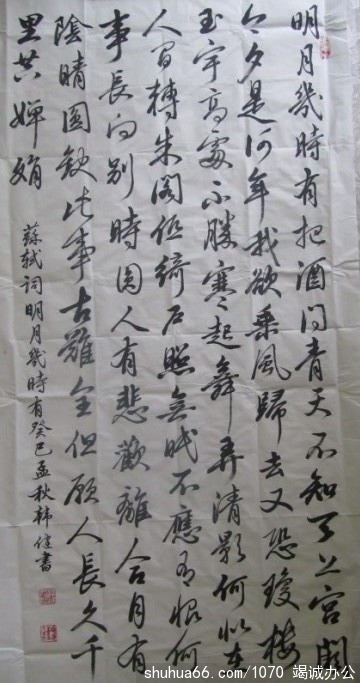 明月幾時有把酒问青天不知天上宫闕
今夕是何年我欲乘风歸去又恐瓊樓
玉宇高處不勝寒起舞弄清影何似在
人间轉朱阁低绮户照無眠不應有恨何
事長向别時圆人有悲歡離合月有
陰晴圆缺此事古難全但願人長久千
里共嬋娟
蘇軾词明月幾時有癸巳孟秋韩健書
shuhua66.com/1070 竭诚办公